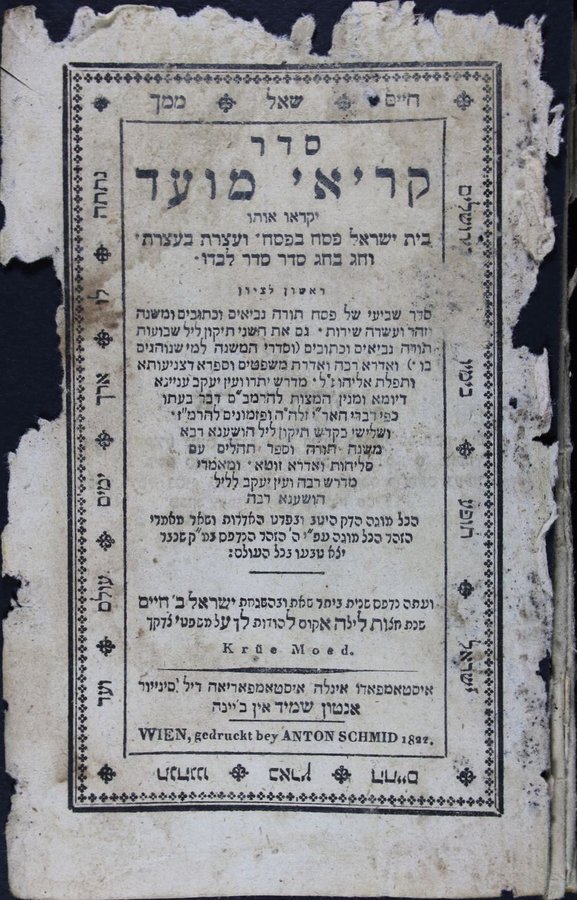 חיים שאל ממך
סדר
קריאי מועד
יקראו אותו
בית ישראל פסח בפסח׳ ועצרת בעצרת׳
וחג בחג סדר סדר לבדו׳
ראשון לציון
סדר שביעי של פסח תורה נביאים וכתובים ומשנה
וזהר ועשרה שירות ׳ גם את השני תיקון ליל שבועות
תורה נביאים וכתובים (וסדרי המשנה למי שנוהגים
בו׳) ואדרא רבה ואדרת משפטים וספרא דצניעותא
ותפלת אליהו ז״ל׳ מדרש יתרו ועין יעקב עניינא
דיומא ומנין המצות להרמב״ם דבר בעתו
כפי דברי האר״י זלה״ה ופזמונים להרמ״ז׳
ושלישי בקדש תיקון ליל הושענא רבא
משנה תורה וספר תהלים עם
סליחות ואדרא זוטא׳ ומאמרי
מדרש רבה ועין יעקב לליל
הושענא רבה
הכל מוגה הדק היטב ובפרט האדרות ושאר מאמרי
הזהר הכל מוגה עפ״י ה׳ הזהר הנדפס
יצא טבעו בכל העולם:
ועתה נדפס שנית ביתר שאת ובהשגחת ישראל ב׳ חיים
שנת חצות לילה אקום להודות לך על משפטי צדקך
Krüe Moed.
איסטאמפאדו אינלה איסטאמפאריאה דיל סיניייור
אנטון שמיד אין ב׳יינה
WIEN, gedruckt bey ANTON SCHMID 1822.
נתתה לו ארך ימים עולם ועד
ירושלים בימין הופע ישראל
החיים בארץ